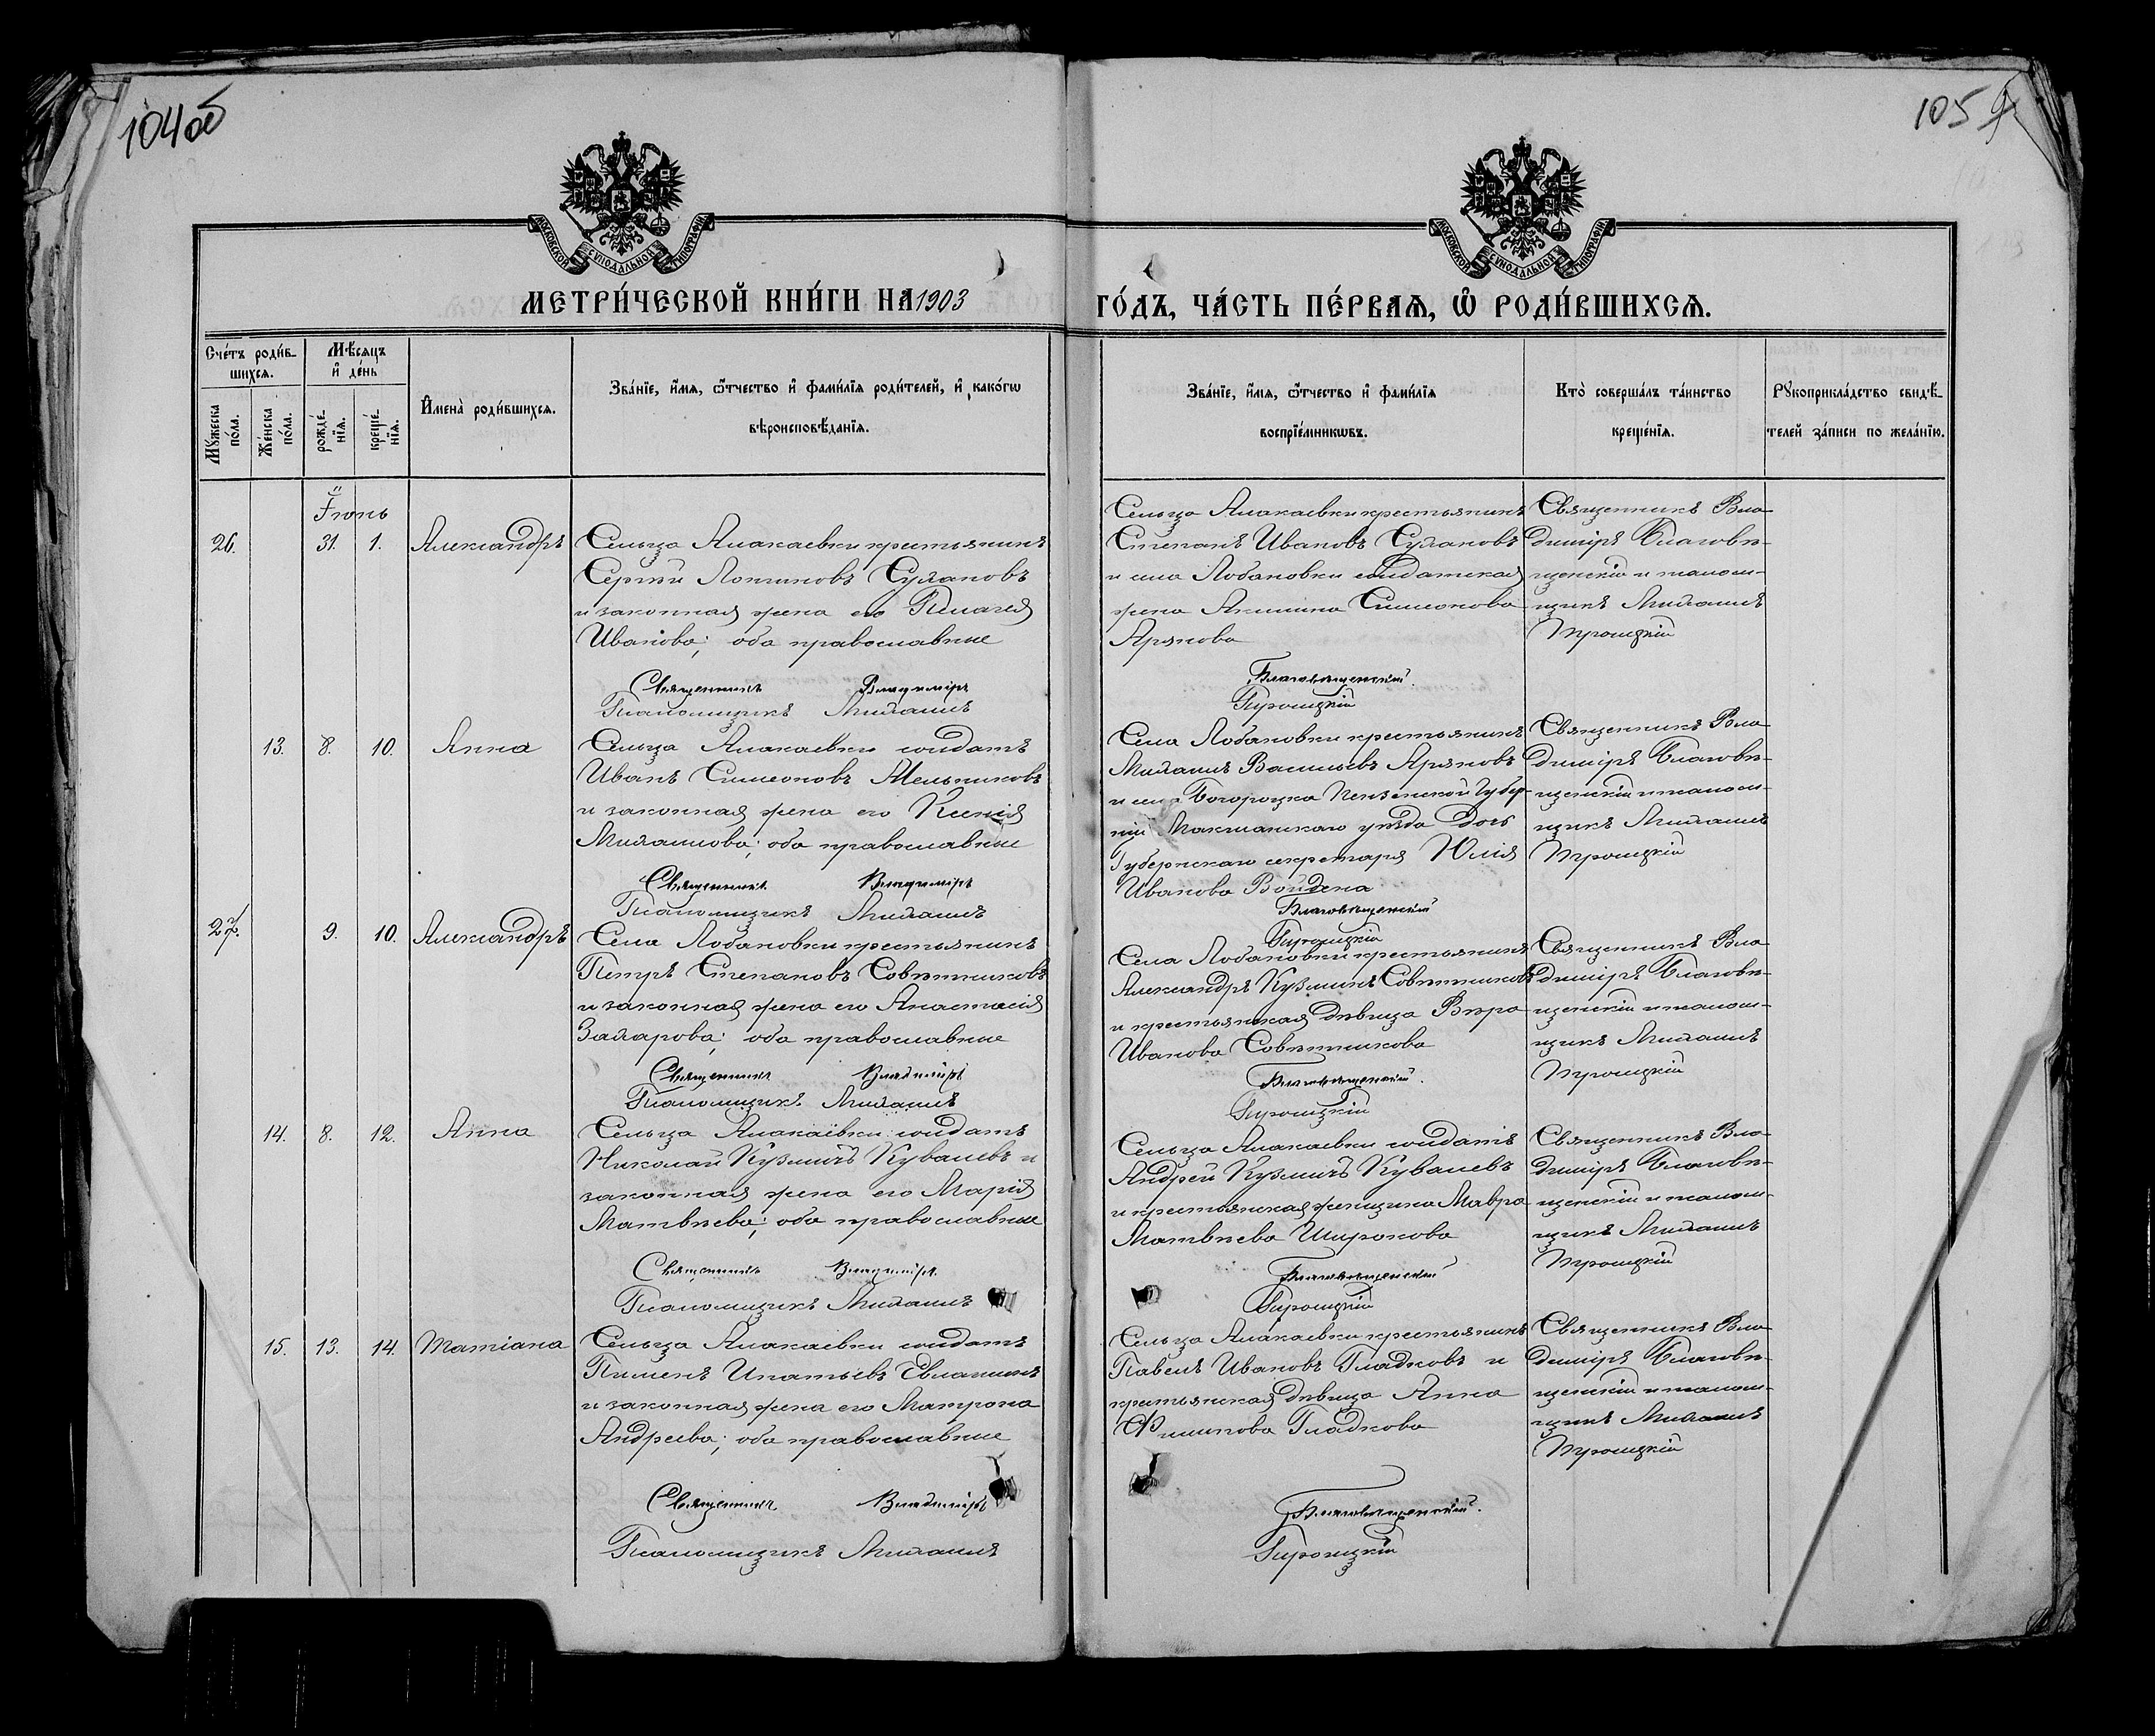 104об
105
МОСКОВСКОЙ СѴНОДАЛЬНОЙ ТИПОГРАФІИ
МОСКОВСКОЙ СѴНОДАЛЬНОЙ ТИПОГРАФІИ
МЕТРИ́ЧЕСКОЙ КНИ́ГИ НА 1903
ГО́ДЪ, ЧА́СТЬ ПЕ́РВАѦ, Ѽ РОДИ́ВШИХСѦ.
Сче́тъ роди́в-
шихсѧ.
Мѣ́сѧцъ
и҆ де́нь
Мꙋ́жеска
по́ла.
Же́нска
по́ла.
рожде́-
нїѧ.
креще́-
нїѧ.
И҆мена̀ роди́вшихсѧ.
Зва́нїе, и҆́мѧ, ѻ҆́тчество и҆ фами́лїѧ роди́телей, и҆ како́гѡ
вѣроисповѣ́данїѧ.
Зва́нїе, и҆́мѧ, ѻ҆́тчество и҆ фами́лїѧ
воспрїе́мникѡвъ.
Кто̀ соверша́лъ та́инство
креще́нїѧ.
Рꙋкоприкла́дство свидѣ́-
телей за́писи по жела́нїю.
Іюнь
26.
31. 1.
Александръ
Сельца Алакаевки крестьянинъ
Сергѣй Логиновъ Сулановъ
и законная жена его Пелагея
Иванова; оба православные
Священникъ Владиміръ
Псаломщикъ Михаилъ
Сельца Алакаевки крестьянинъ
Степанъ Ивановъ Сулановъ
и села Лобановки солдатская
жена Акилина Симеонова
Аряпова
Благовѣщенскій.
Троицкій
Священникъ Вла-
диміръ Благовѣ-
щенскій и псалом-
щикъ Михаилъ
Троицкій
13. 8. 10.
Анна
Сельца Алакаевки солдатъ
Иванъ Симеоновъ Мельниковъ
и законная жена его Ксенія
Михаилова; оба православные
Священникъ Владиміръ
Псаломщикъ Михаилъ
Села Лобановки крестьянинъ
Михаилъ Васильевъ Аряповъ
и села Богородска Пензенской губер-
ніи Мокшанскаго уѣзда дочь
Губернскаго секретаря Юлія
Иванова
Благовѣщенскій
Троицкій
Священникъ Вла-
диміръ Благовѣ-
щенскій и псалом-
щикъ Михаилъ
Троицкій
27.
9. 10.
Александръ
Села Лобановки крестьянинъ
Петръ Степановъ Совѣтниковъ
и законная жена его Анастасія
Захарова; оба православные
Священникъ Владиміръ
Псаломщикъ Михаилъ
Села Лобановки крестьянинъ
Александръ Кузминъ Совѣтниковъ
и крестьянская дѣвица Вѣра
Иванова Совѣтникова
Благовѣщенскій.
Троицкій
Священникъ Вла-
диміръ Благовѣ-
щенскій и псалом-
щикъ Михаилъ
Троицкій
14. 8. 12.
Анна
Сельца Алакаевки солдатъ
Николай Кузмичъ Кувалевъ и
законная жена его Марія
Матвѣева; оба православные
Священникъ Владиміръ
Псаломщикъ Михаилъ
Сельца Алакаевки солдатъ
Андрей Кузмичъ Кувалевъ
и крестьянская женщина Мавра
Матвѣева Широкова
Благовѣщенскій
Троицкій
Священникъ Вла-
диміръ Благовѣ-
щенскій и псалом-
щикъ Михаилъ
Троицкій
15. 13. 14.
Татіана
Сельца Алакаевки солдатъ
Пименъ Игнатьевъ Евлашинъ
и законная жена его Матрона
Андреева; оба православные
Священникъ Владиміръ
Псаломщикъ Михаилъ
Сельца Алакаевки крестьянинъ
Павелъ Ивановъ Гладковъ и
крестьянская дѣвица Анна
Филипова Гладкова
Благовѣщенскій.
Троицкій
Священникъ Вла-
диміръ Благовѣ-
щенскій и псалом-
щикъ Михаилъ
Троицкій